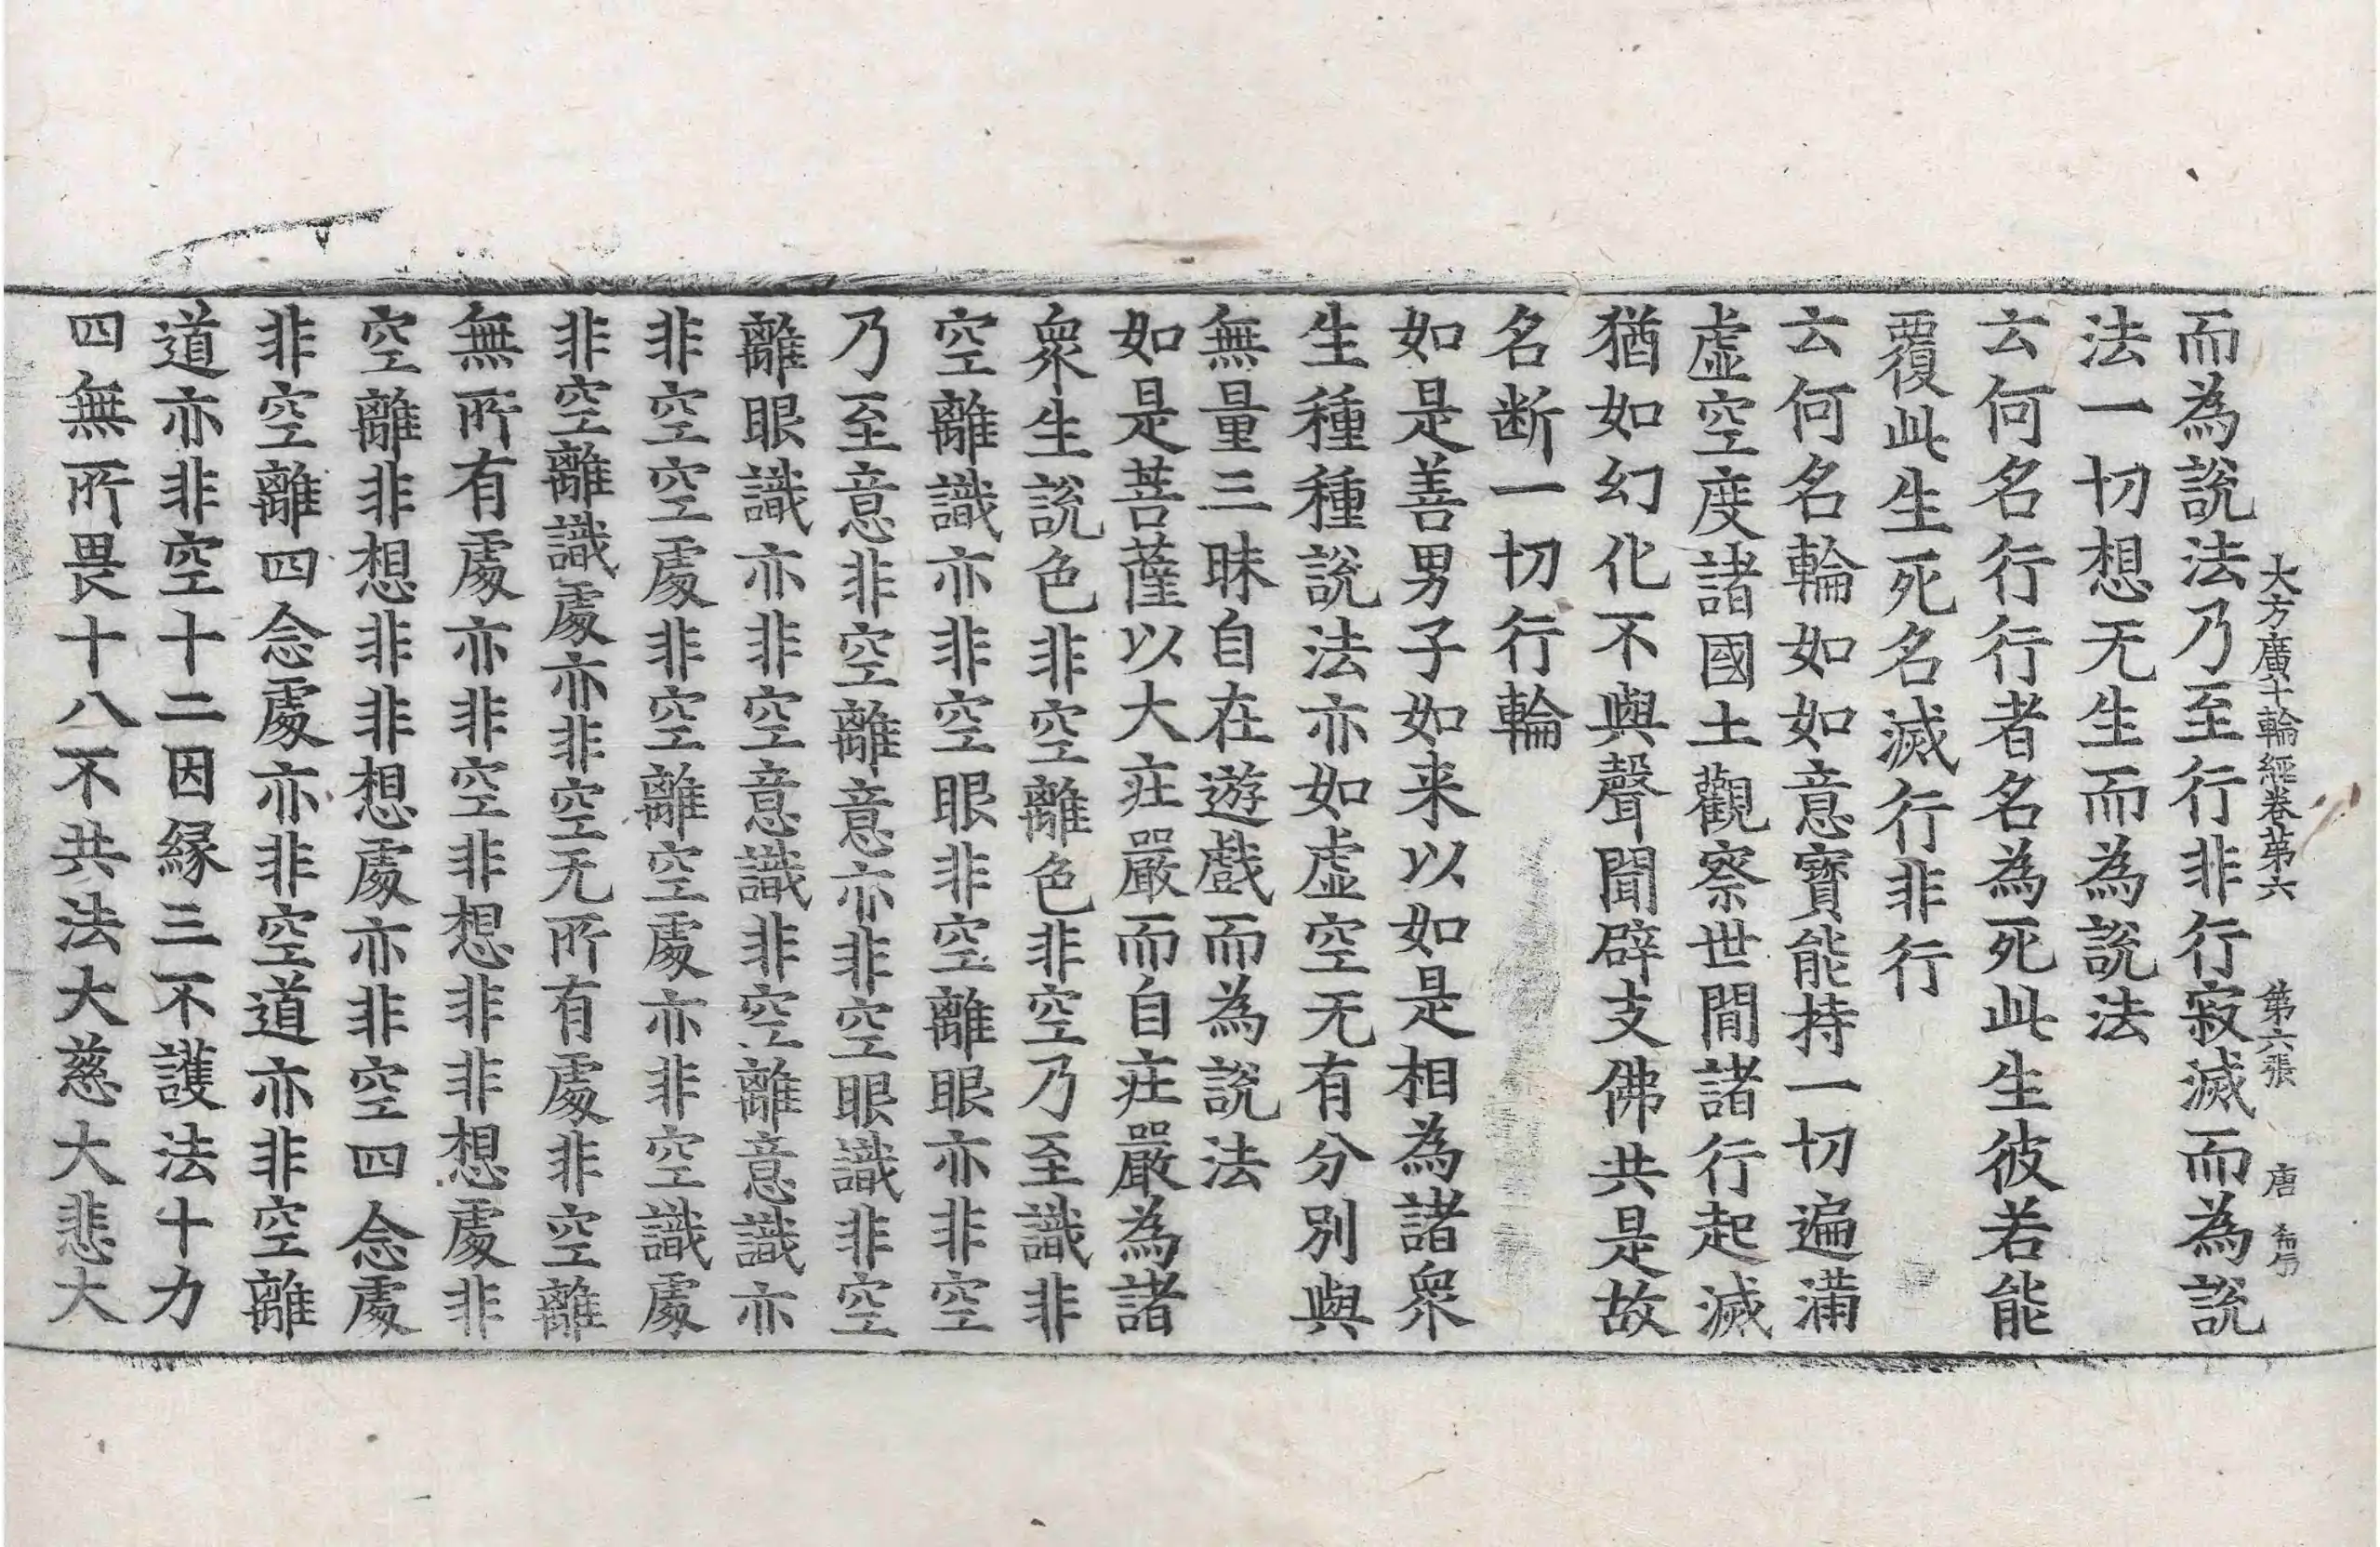 大方廣十輪經卷第六 第六張 唐
而為說法乃至行非行寂滅而為說
法一切想无生而為說法
云何名行行者名為死此生彼若能
覆此生死名滅行非行
云何名輪如如意寶能持一切遍滿
虛空度諸國土觀察世間諸行起滅
猶如幻化不與聲聞辟支佛共是故
名断一切行輪
如是善男子如来以如是相為諸衆
生種種說法亦如虛空无有分別與
無量三昧自在遊戲而為說法
如是菩薩以大莊嚴而自莊嚴為諸
衆生說色非空離色非空乃至識非
空離識亦非空眼非空離眼亦非空
乃至意非空離意亦非空眼識非空
離眼識亦非空意識非空離意識亦
非空空處非空離空處亦非空識處
非空離識處亦非空无所有處非空離
無所有處亦非空非想非非想處非
空離非想非非想處亦非空四念處
非空離四念處亦非空道亦非空離
道亦非空十二因縁三不護法十力
四無所畏十八不共法大慈大悲大